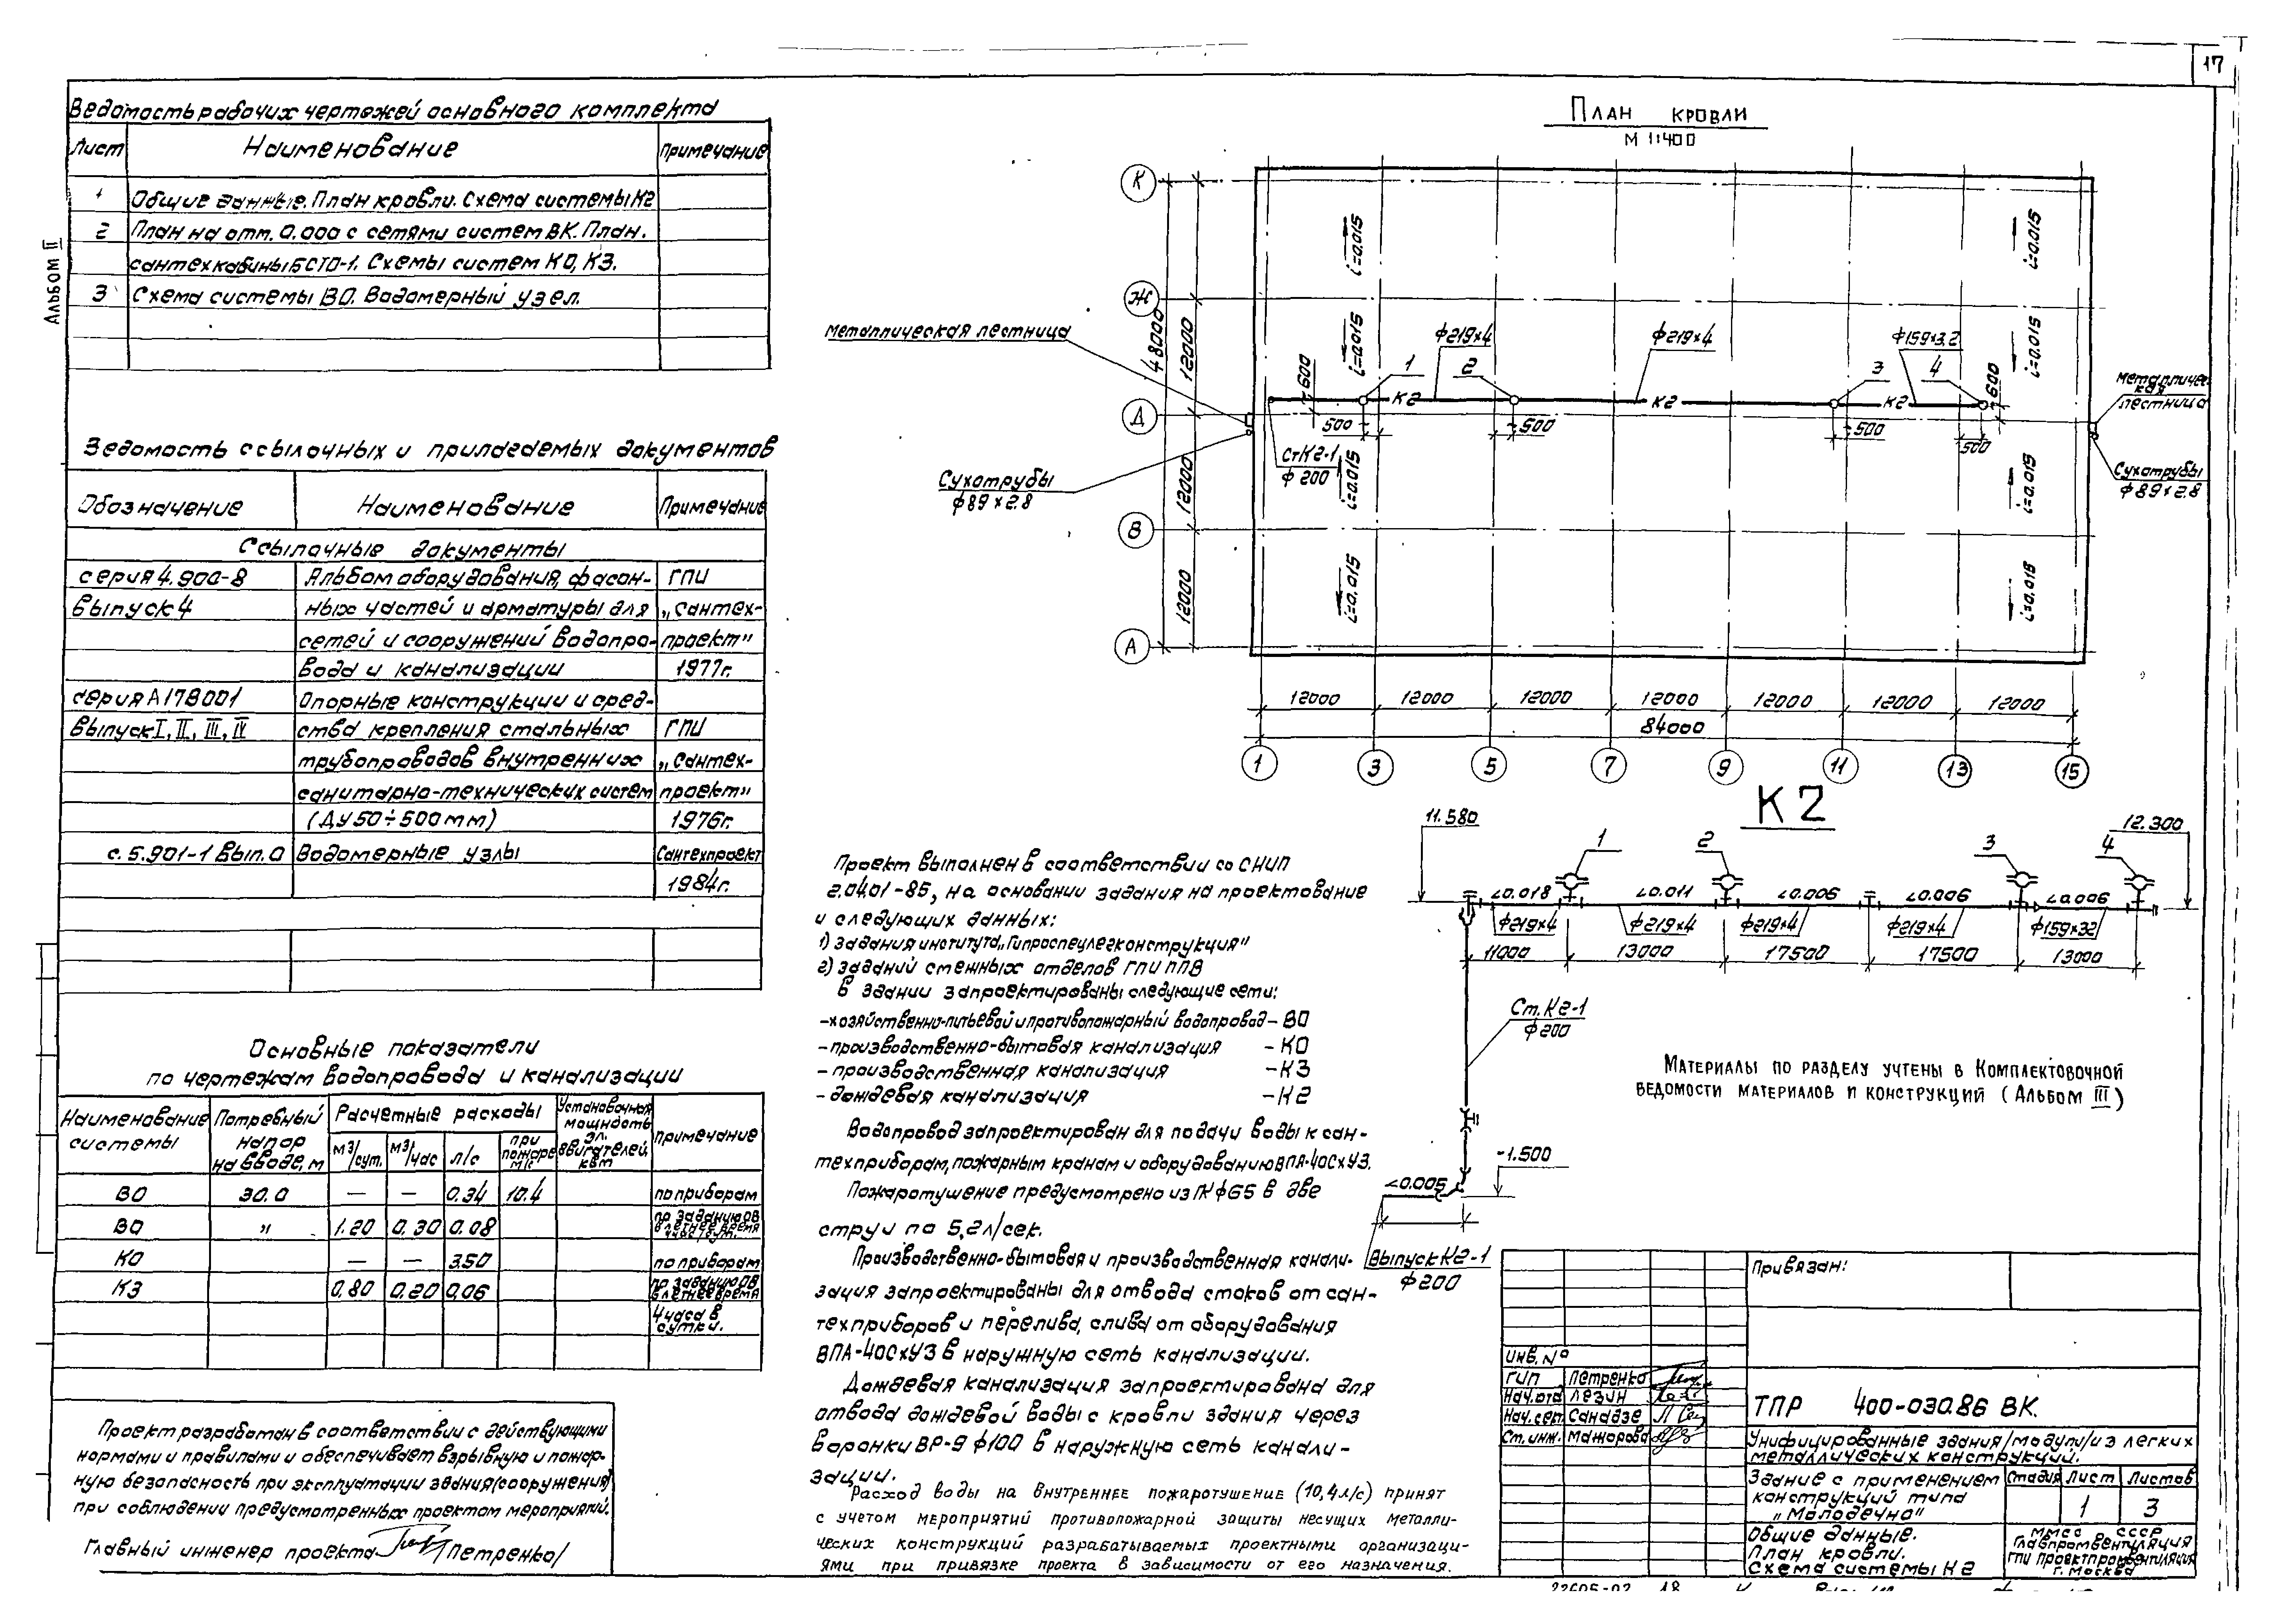 17
Альбом II
Ведомость рабочих чертежей основного комплекта
Лист Наименование Примечание
1 Общие данные. План кровли. Схема системы К2
2 План на отм. 0.000 с сетями систем ВК. План.
сантехкабины БСТО-1. Схемы систем К0, К3.
3 Схема системы В0. Водомерный узел.
Ведомость ссылочных и прилагаемых документов
Обозначение Наименование Примечание
Ссылочные документы
серия 4.900-8 Альбом оборудования, фасон- ГПИ
выпуск 4 ных частей и арматуры для „Сантех-
сетей и сооружений водопро- проект"
вода и канализации 1977г.
серия А178001 Опорные конструкции и сред-
выпуск I, II, III, IV ства крепления стальных ГПИ
трубопроводов внутренних „Сантех-
санитарно-технических систем проект"
(ДУ 50÷500мм) 1976г.
с. 5.901-1 Вып. 0 Водомерные узлы Сантехпроект
1984г.
Основные показатели
по чертежам водопровода и канализации
Наименование системы Потребный напор на вводе, м Расчетные расходы Установочная мощность эл. двигателей, квт Примечание
м³/сут. м³/час л/с при пожаре л/с
В0 30.0 — — 0.34 10.4 по приборам
В0 " 1.20 0.30 0.08 по заданию ОВ в летнее время
К0 — — 3.50 по приборам
К3 0,80 0,20 0,06 по заданию ОВ в летнее время
4 часа в
сутки.
Проект разработан в соответствии с действующими
нормами и правилами и обеспечивает взрывную и пожар-
ную безопасность при эксплуатации здания (сооружения)
при соблюдении предусмотренных проектом мероприятий.
Главный инженер проекта /Петренко/
План кровли
М 1:400
К
Ж
Д
В
А
48000
12000
12000
12000
Металлическая лестница
Сухотрубы
ф89×2.8
i=0.015
i=0.015
i=0.015
i=0.015
i=0.015
i=0.015
i=0.015
i=0.015
600
ф219×4
ф219×4
ф159×3.2
1 2 3 4
600
К2 К2 К2
500 500 500 500
СтК2-1
ф 200
Металличес-
кая
лестница
Сухотрубы
ф89×2.8
12000 12000 12000 12000 12000 12000 12000
84000
1 3 5 7 9 11 13 15
К2
11.580
12.300
1 2 3 4
0.018 0.011 0.006 0.006 0.006
ф219×4 ф219×4 ф219×4 ф219×4 ф159×32
11000 13000 17500 17500 13000
Ст. К2-1
ф200
-1.500
0.005
Выпуск К2-1
ф200
Материалы по разделу учтены в Комплектовочной
ведомости материалов и конструкций (Альбом III)
Проект выполнен в соответствии со СНИП
2.04.01-85, на основании задания на проектование
и следующих данных:
1) задания института „Гипроспецлегконструкция"
2) заданий смежных отделов ГПИ ППВ
В здании запроектированы следующие сети:
-хозяйственно-питьевой и противопожарный водопровод – В0
-производственно-бытовая канализация – К0
-производственная канализация – К3
-дождевая канализация – К2
Водопровод запроектирован для подачи воды к сан-
техприборам, пожарным кранам и оборудованию ВПА-40СхУ3.
Пожаротушение предусмотрено из ПК ф65 в две
струи по 5,2 л/сек.
Производственно-бытовая и производственная канали-
зация запроектированы для отвода стоков от сан-
техприборов и перелива, слива от оборудования
ВПА-40СхУ3 в наружную сеть канализации.
Дождевая канализация запроектирована для
отвода дождевой воды с кровли здания через
воронки ВР-9 ф100 в наружную сеть канали-
зации.
Расход воды на внутреннее пожаротушение (10,4л/с) принят
с учетом мероприятий противопожарной защиты несущих металли-
ческих конструкций разрабатываемых проектными организаци-
ями при привязке проекта в зависимости от его назначения.
Привязан:
Инв. №
ГИП Петренко
Нач. отд Лезин
Нач. сект. Санадзе
Ст. инж. Мажорова
ТПР 400-030.86 ВК.
Унифицированные здания /модули/ из легких
металлических конструкций.
Здание с применением
конструкций типа
„Молодечно"
Стадия Лист Листов
1 3
Общие данные.
План кровли.
Схема системы К2
ММСС СССР
Главпромвентиляция
ГПИ Проектпромвентиляция
г. Москва
22605-02 18